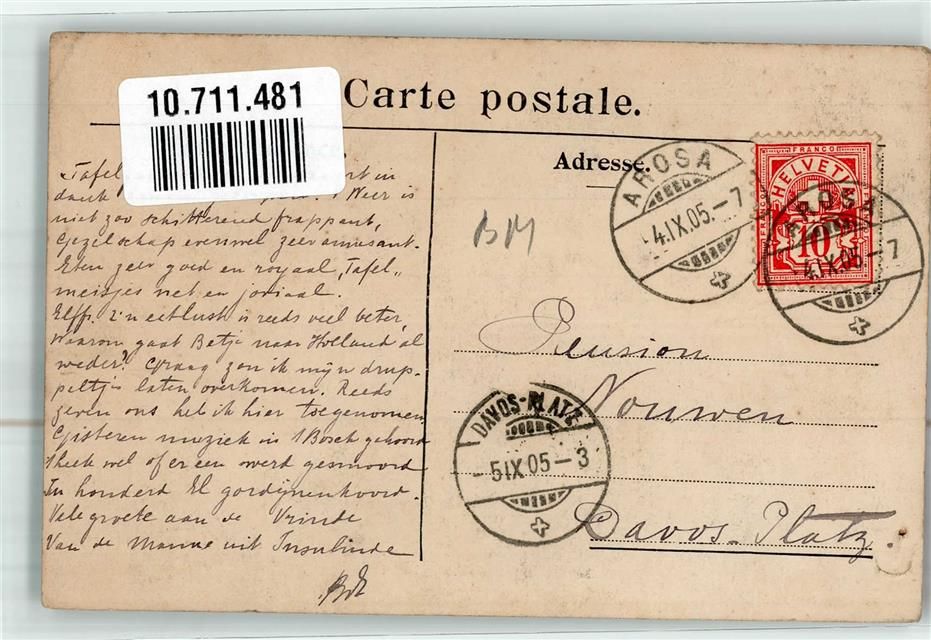 10.711.481
Carte postale.
Adresse.
AROSA
4.IX.05.-7
FRANCO
HELVETIA
10
AROSA
4.IX.05.-7
BM
Pension
Nouwen
Davos-Platz
DAVOS-PLATZ
-5.IX.05-3
Tafel
dank Weer is
niet zoo schitterend frappant,
Gezelschap evenwel zeer amusant.
Eten zeer goed en royaal, Tafel„
meisjes net en joviaal.
Elffr. z'n eetlust is reeds veel beter,
Waarom gaat Betje naar Holland al
weder? Graag zou ik mijn drup-
peltjes laten overkomen. Reeds
zeven ons heb ik hier toegenomen
Gisteren muziek in 't Bosch gehoord
't leek wel of er een werd gesmoord
In honderd El gordijnenkoord.
Vele groete aan de Vrinde
Van de Manne uit Insulinde